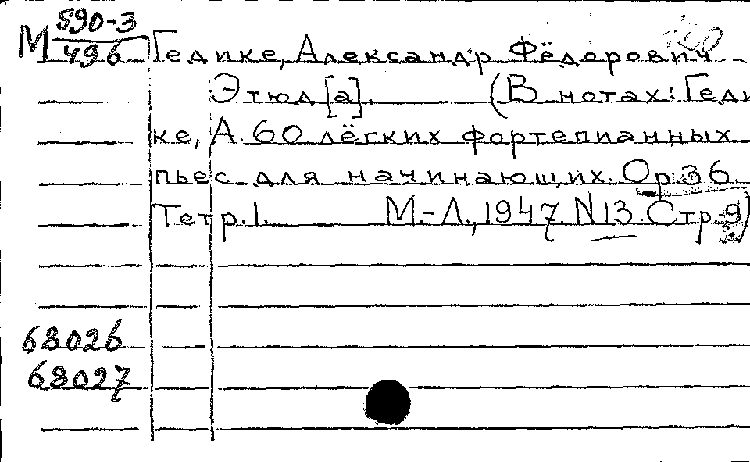 М 590-3
496
Гедике, Александр Фёдорович
Этюд [а]. (В нотах: Геди
ке, А. 60 лёгких фортепианных
пьес для начинающих. Op. 36.
Тетр. 1. М.-Л., 1947 N13. Стр. 9)
68026
68027